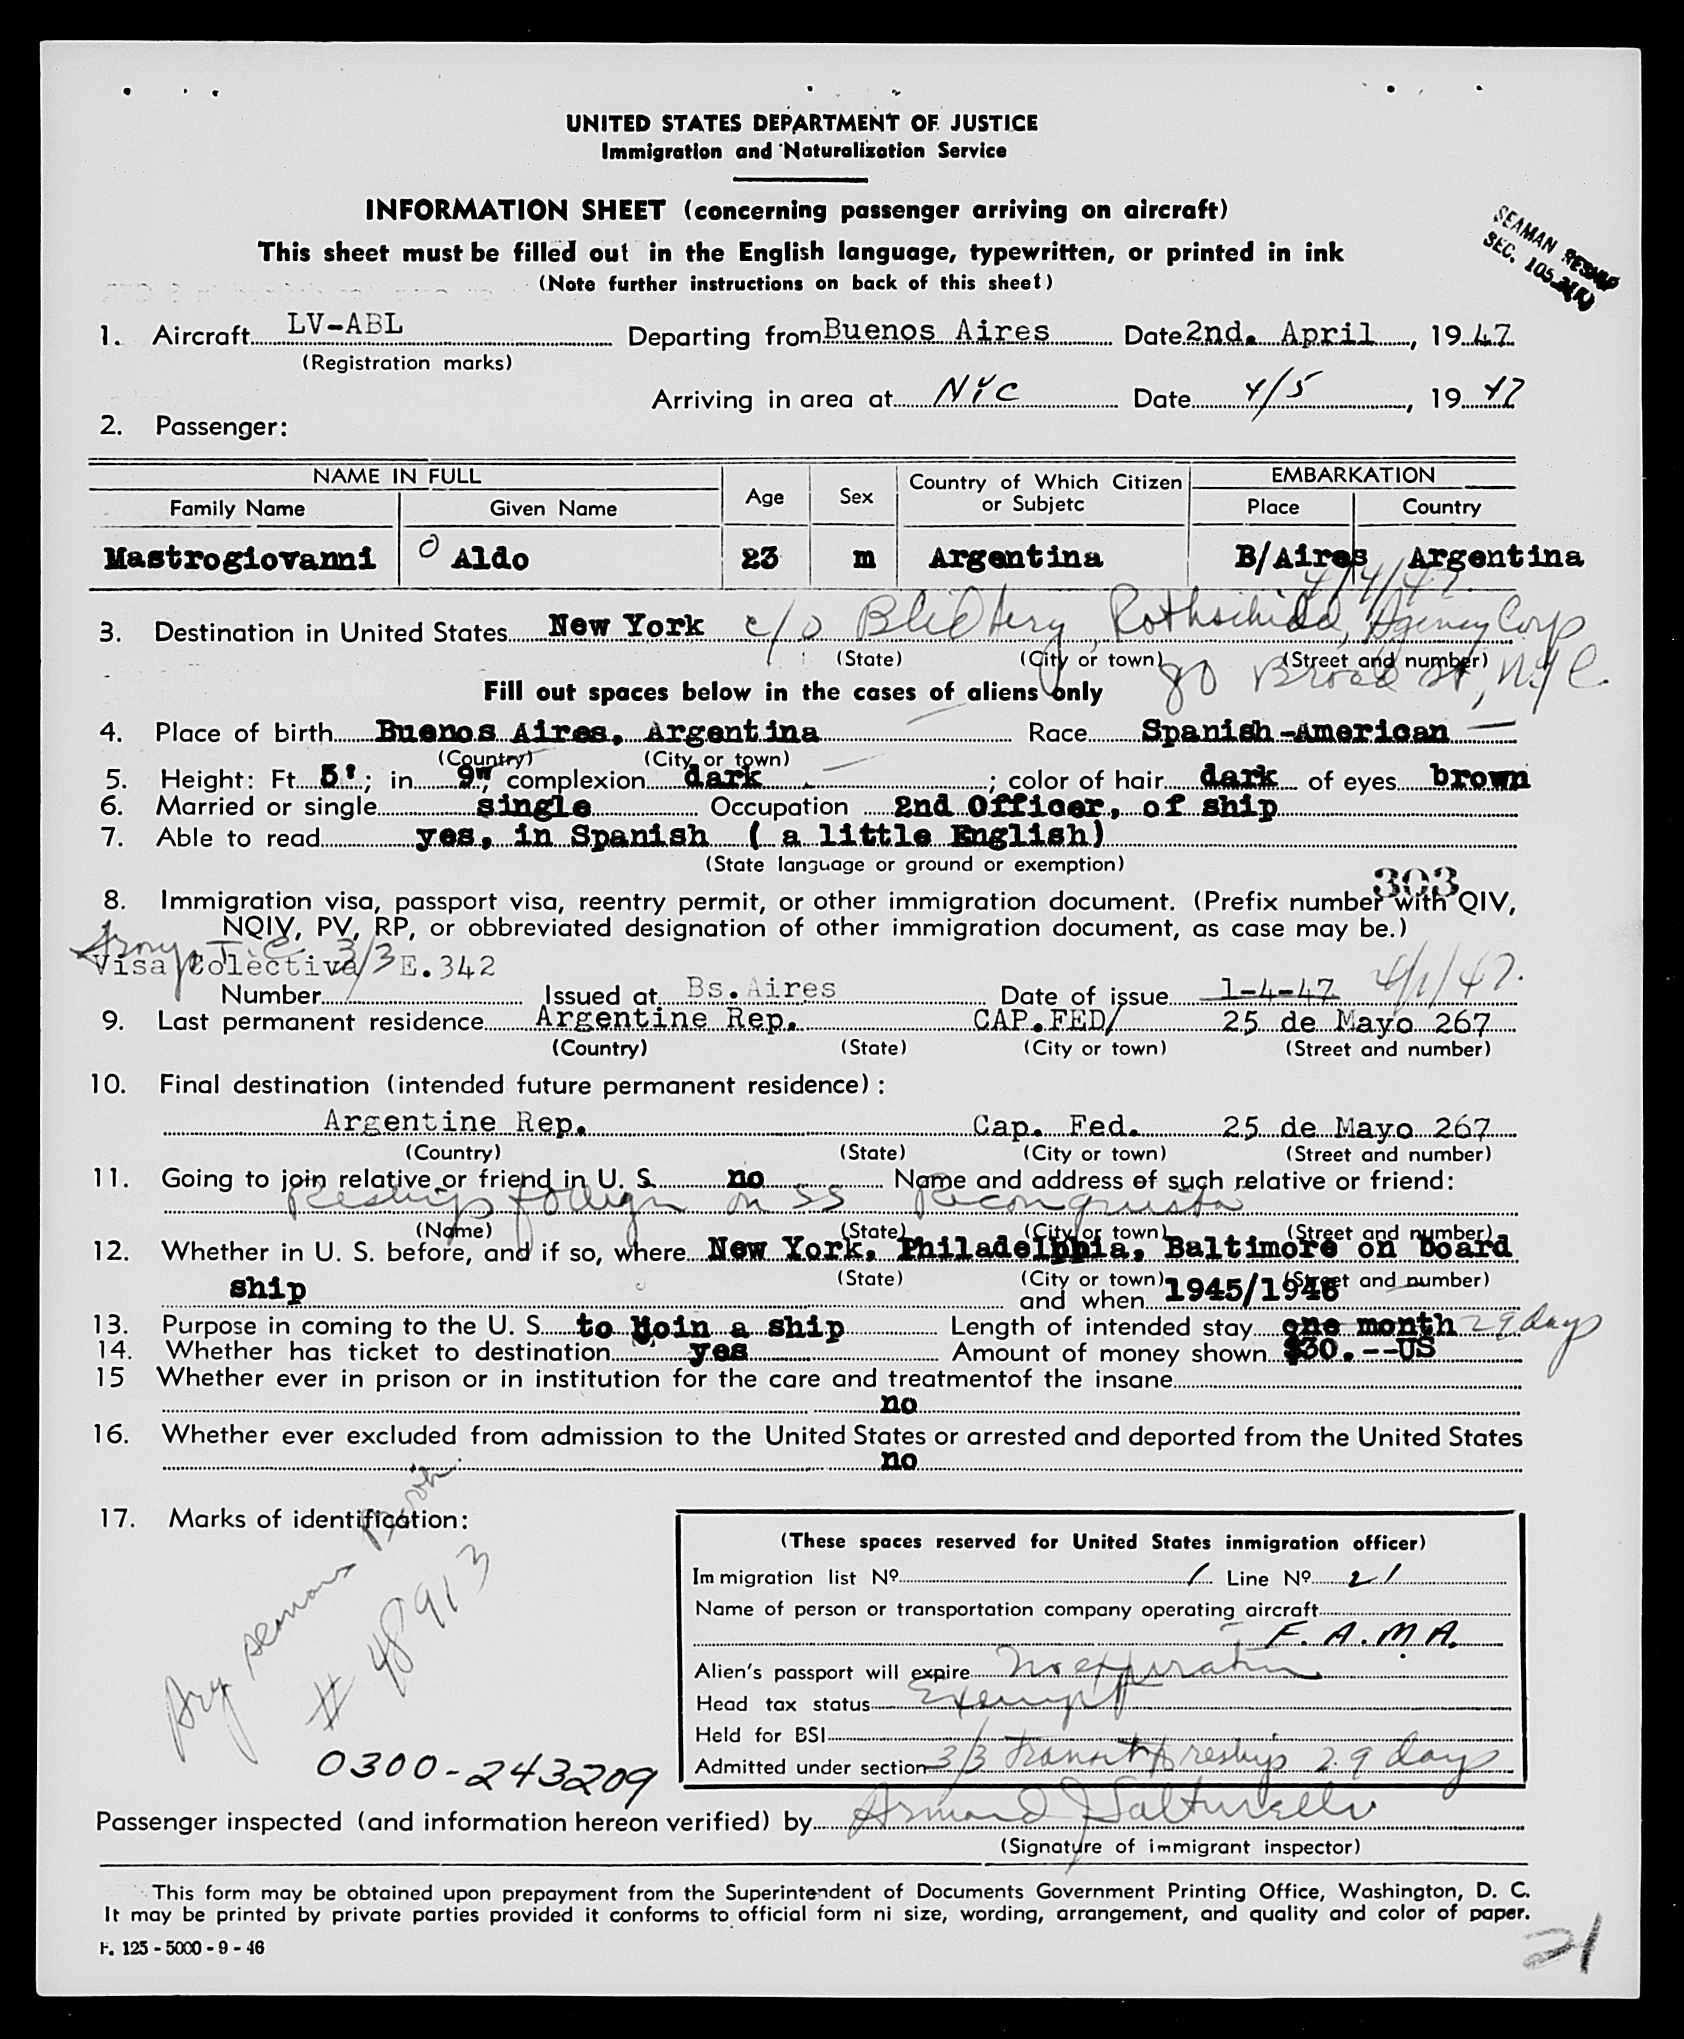 UNITED STATES DEPARTMENT OF JUSTICE
Immigration and Naturalization Service
INFORMATION SHEET (concerning passenger arriving on aircraft)
This sheet must be filled out in the English language, typewritten, or printed in ink
(Note further instructions on back of this sheet)
SEAMAN RESHIP
SEC. 105.
1. Aircraft LV-ABL Departing from Buenos Aires Date 2nd. April, 1947
(Registration marks)
Arriving in area at NYC Date 4/5, 1947
2. Passenger:
NAME IN FULL Age Sex Country of Which Citizen or Subjetc EMBARKATION
Family Name Given Name Place Country
Mastrogiovanni O Aldo 23 m Argentina B/Aires Argentina
4/4/47
3. Destination in United States New York c/o Rothschild, Agency Corp
(State) (City or town) (Street and number)
80 Broad St, NYC.
Fill out spaces below in the cases of aliens only
4. Place of birth Buenos Aires, Argentina Race Spanish-American
(Country) (City or town)
5. Height: Ft. 5'; in. 9", complexion dark; color of hair dark of eyes brown
6. Married or single single Occupation 2nd Officer, of ship
7. Able to read yes, in Spanish ( a little English)
(State language or ground or exemption)
303
8. Immigration visa, passport visa, reentry permit, or other immigration document. (Prefix number with QIV,
NQIV, PV, RP, or obbreviated designation of other immigration document, as case may be.)
3/3
Visa Colectiva E.342
Number Issued at Bs.Aires Date of issue 1-4-47 4/1/47.
9. Last permanent residence Argentine Rep. CAP.FED/ 25 de Mayo 267
(Country) (State) (City or town) (Street and number)
10. Final destination (intended future permanent residence):
Argentine Rep. Cap. Fed. 25 de Mayo 267
(Country) (State) (City or town) (Street and number)
11. Going to join relative or friend in U. S. no Name and address of such relative or friend:
Reship foreign on SS Reconquista
(Name) (State) (City or town) (Street and number)
12. Whether in U. S. before, and if so, where New York, Philadelphia, Baltimore on board
(State) (City or town) (Street and number)
ship and when 1945/1946
13. Purpose in coming to the U. S. to join a ship Length of intended stay one month 29 days
14. Whether has ticket to destination yes Amount of money shown $30.--US
15 Whether ever in prison or in institution for the care and treatmentof the insane
no
16. Whether ever excluded from admission to the United States or arrested and deported from the United States
no
17. Marks of identification:
Arg seamans Book
# 48913
0300-243209
(These spaces reserved for United States inmigration officer)
Immigration list Nº 1 Line Nº 21
Name of person or transportation company operating aircraft
F. A. M. A.
Alien's passport will expire No expiration
Head tax status Exempt
Held for BSI
Admitted under section 3/3 transit reship 29 days
Passenger inspected (and information hereon verified) by Armand J
(Signature of immigrant inspector)
This form may be obtained upon prepayment from the Superintendent of Documents Government Printing Office, Washington, D. C.
It may be printed by private parties provided it conforms to official form ni size, wording, arrangement, and quality and color of paper.
F. 125 - 5000 - 9 - 46
21